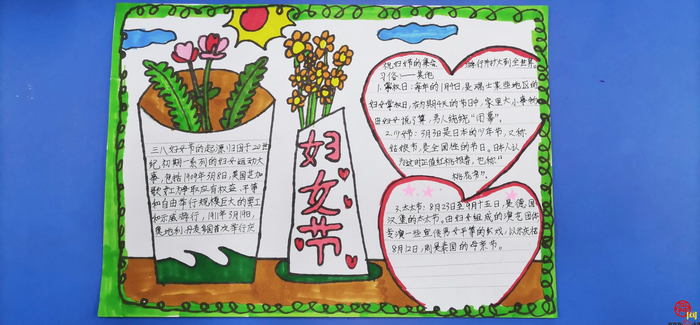 三八妇女节的起源归因于20世
纪初期一系列的妇女运动大
赛,包括1909年3月8日,美国芝加
哥女工为争取应有权益、平等
和自由举行规模巨大的罢工
和示威游行,1911年3月19日,
奥地利丹麦等国首次举行庆
妇女节
祝妇女节的集会
习俗——其他
1.掌权日:每年的1月9日,是瑞士某些地区的
妇女掌权日,在为期4天的节日中,家里大小事物
由妇女说了算,男人统统"闭幕"。
2.少女节:3月3日是日本的少年节,又称
姑娘节,是全国性的节日。日本人认
为这时正值红桃相春,也称"
桃花季"。
3.太太节:8月23日至9月十五日,是德国
汉堡的太太节。由妇女组成的演艺团体
专演一些宣传男女平等的
8月12日,则是泰国的母亲节。